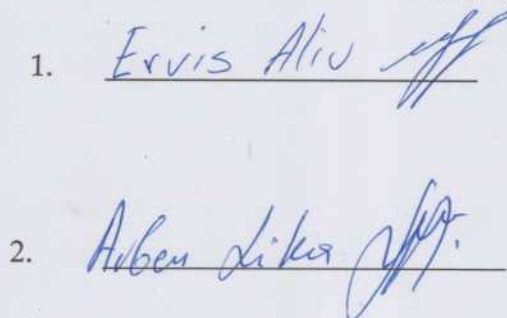 1. Ervis Aliu
2. Arben Lika